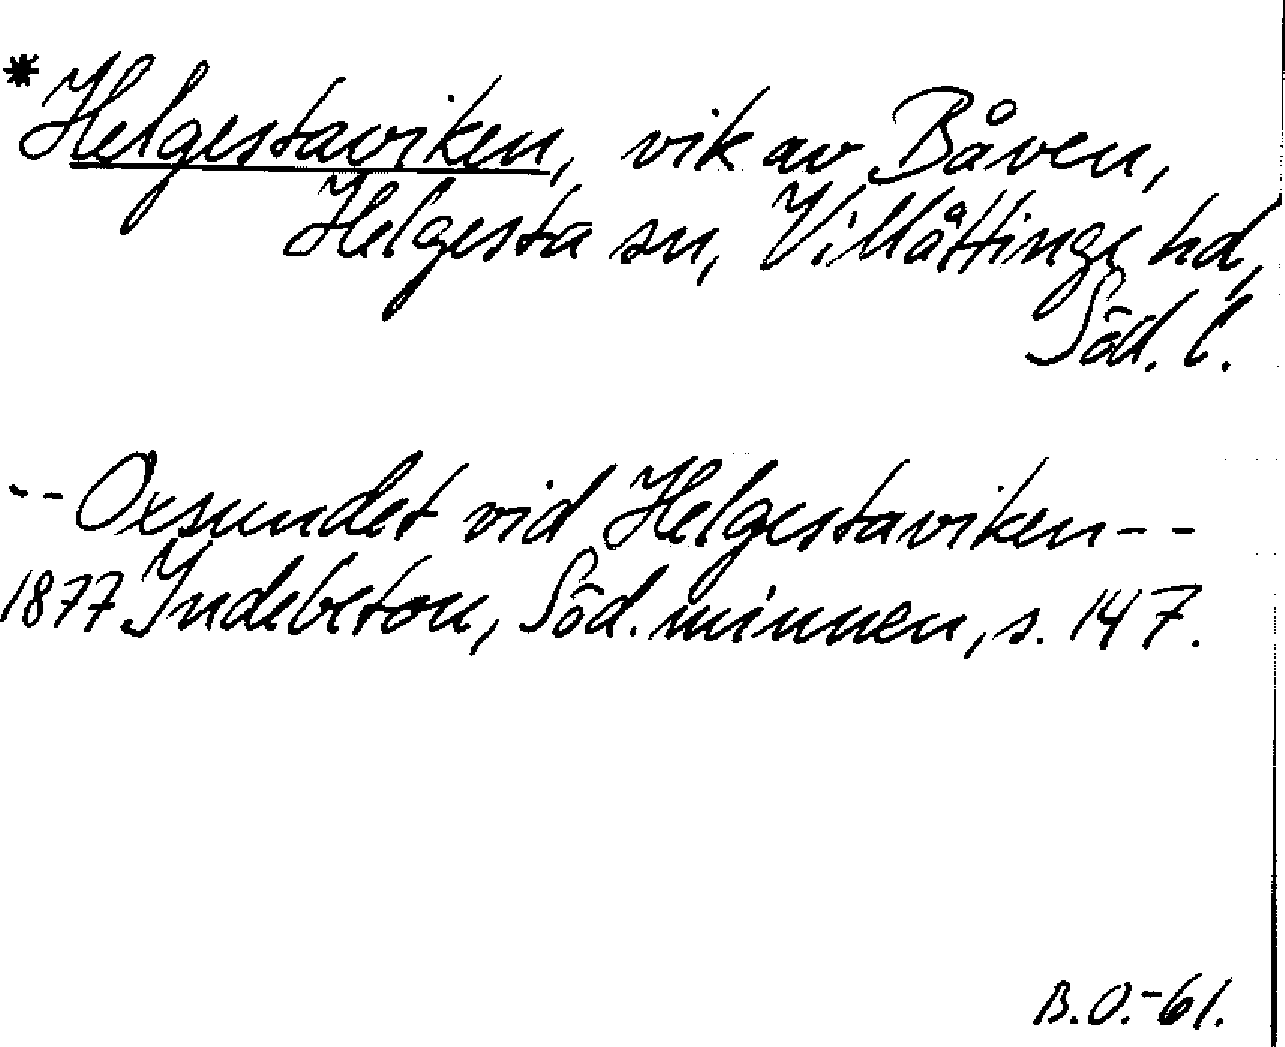 *Helgestaviken, vik av Båven,
Helgesta sn, Villåttinge hd,
Söd. l.
-- Oxsundet vid Helgestaviken --
1877 Indebetou, Söd. minnen, s. 147.
B.O.-61.